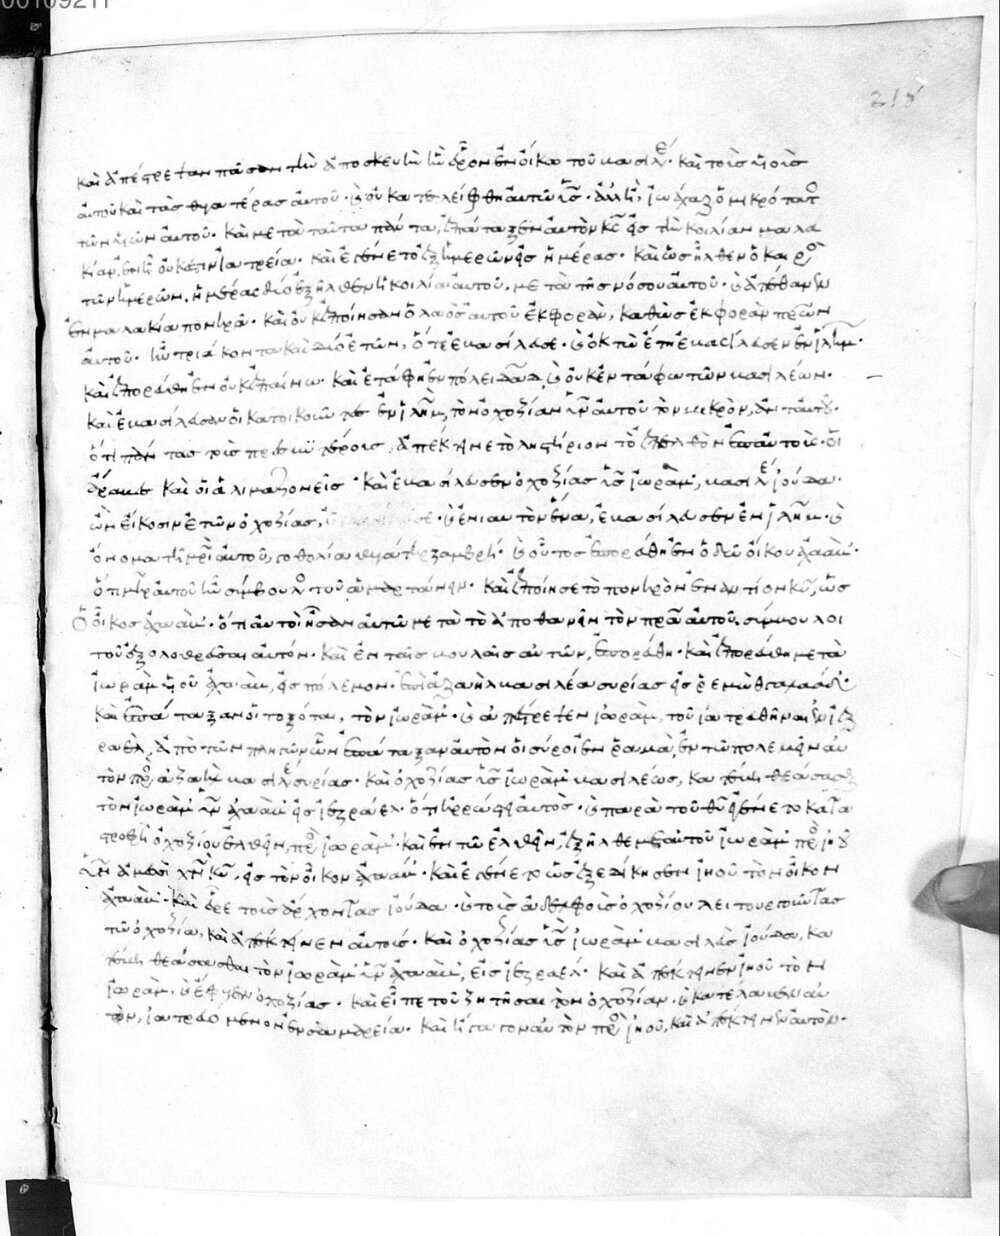 00109211
215
καὶ ἀπέστρεψαν πᾶσαν τὴν ἀποσκευὴν ἣν εὗρον ἐν οἴκω τοῦ βασιλέ. καὶ τοὺς υἱοὺς
αὐτοῦ καὶ τὰς θυγατέρας αὐτοῦ. καὶ οὐ κατελείφθη αὐτῶ υἱς. ἀλλ' ἢ ἰωάχαζ ὁ μικρότατο
τῶν υἱῶν αὐτοῦ. καὶ μετὰ ταῦτα πάντα, ἐπάταξεν αὐτὸν κς εἰς τὴν κοιλίαν μαλα
κίαν, ἐν ἧ οὐκ ἔστιν ἰατρεία. καὶ ἐγένετο ἐξ ἡμερῶν εἰς ἡμέρας. καὶ ὡς ἦλθεν ὁ καιρὸ
τῶν ἡμερῶν, ἡμέρας δύο ἐξῆλθεν ἡ κοιλία αὐτοῦ, μετὰ τῆς νόσου αὐτοῦ. καὶ ἀπέθανεν
ἐν μαλακία πονηρᾶ. καὶ οὐκ ἐποίησεν ὁ λαὸς αὐτοῦ ἐκφορὰν, καθὼς ἐκφορὰν πρων
αὐτοῦ. ἦν τριάκοντα καὶ δύο ἐτῶν, ὅτε ἐβασίλευσε. καὶ ὀκτὼ ἔτη ἐβασίλευσεν ἐν ἱλημ.
καὶ ἐπορεύθη ἐν οὐκ ἐπαίνω. καὶ ἐτάφη ἐν πόλει δαδ, καὶ οὐκ ἐν τάφω τῶν βασιλέων.
καὶ ἐβασίλευσαν οἱ κατοικοῦντες ἐν ἱλημ, τὸν ὀχοζίαν υἱν αὐτοῦ τὸν μικρὸν, ἀντ' αὐτοῦ.
ὅτι πάντας τοὺς πρεσβυτέρους, ἀπέκτεινε τὸ ληστήριον τὸ ἐπελθὸν ἐπ' αὐτοὺς. οἱ
ἄραβες καὶ οἱ ἀλιμαζονεῖς. καὶ ἐβασίλευσεν ὀχοζίας υἱς ἰωρὰμ, βασιλέ ἰούδα.
ὢν εἴκοσι ἐτῶν ὀχοζίας, ἐβασίλευσε. καὶ ἐνιαυτὸν ἕνα, ἐβασίλευσεν ἐν ἱλημ. καὶ
ὄνομα τῆ μρὶ αὐτοῦ, γοθολία θυγάτηρ ζαμβρί. καὶ οὗτος ἐπορεύθη ἐν ὁδῶ οἴκου ἀχαὰβ.
ὅτι μηρ αὐτοῦ ἦν σύμβουλο. τοῦ ἁμαρτάνειν. καὶ ἐποίησε τὸ πονηρὸν ἐναντίον κυ, ὡς
ὁ οἶκος ἀχαάβ. ὅτι αὐτοὶ ἦσαν αὐτῶ μετὰ τὸ ἀποθανεῖν τὸν πρα αὐτοῦ, σύμβουλοι
τοῦ ἐξολοθρεῦσαι αὐτόν. καὶ ἐν ταῖς βουλαῖς αὐτῶν, ἐπορεύθη. καὶ ἐπορεύθη μετὰ
ἰωρὰμ υἱοῦ ἀχαὰβ, εἰς πόλεμον. ἐπὶ ἀζαὴλ βασιλέα συρίας εἰς ῥεμὼθ γαλαάδ.
καὶ ἐπάταξαν οἱ τοξόται, τὸν ἰωρὰμ. καὶ ἀπέστρεψεν ἰωρὰμ, τοῦ ἰατρευθῆναι ἐν ἰεζ
ραὲλ, ἀπὸ τῶν πληγῶν ὧν ἐπάταξαν αὐτὸν οἱ σύροι ἐν ῥαμὰ, ἐν τῶ πολεμεῖν αὐ
τὸν προ ἀζαὴλ βασιλέ συρίας. καὶ ὀχοζίας υἱς ἰωρὰμ βασιλέως, κατέβη θεάσασθ
τὸν ἰωρὰμ υἱν ἀχαὰβ εἰς ἰεζραέλ. ὅτι ἠρρώστει αὐτός. καὶ παρὰ τοῦ θυ ἐγένετο κατα
στροφὴ ὀχοζίου ἐλθεῖν, προ ἰωράμ. καὶ ἐν τῶ ἐλθεῖν, ἐξῆλθε μετ' αὐτοῦ ἰωρὰμ προ ἰηοὺ
υἱν ναμεσὶ χρν κυ, εἰς τὸν οἶκον ἀχαάβ. καὶ ἐγένετο ὡς ἐξεδίκησεν ἰηοὺ τὸν οἶκον
ἀχαὰβ. καὶ εὗρε τοὺς ἄρχοντας ἰούδα. καὶ τοὺς ἀδελφοὺς ὀχοζίου λειτουργοῦντας
τῶ ὀχοζία, καὶ ἀπέκτεινεν αὐτούς. καὶ ὀχοζίας υἱς ἰωρὰμ βασιλεὺς ἰούδα, κα
τέβη θεάσασθαι τὸν ἰωρὰμ υἱν ἀχαὰβ, εἰς ἰεζραέλ. καὶ ἀπέκτεινεν ἰηοὺ τὸν
ἰωράμ. καὶ ἔφυγεν ὀχοζίας. καὶ εἶπε τοῦ ζητῆσαι τὸν ὀχοζίαν. καὶ κατέλαβεν αὐ
τὸν, ἰατρευόμενον ἐν σαμαρεία. καὶ ἤγαγον αὐτὸν προ ἰηοὺ, καὶ ἀπέκτεινεν αὐτὸν.